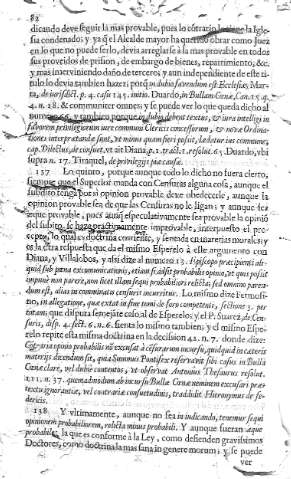 82
dicando deve seguir la mas provable, pues lo contrario la Igle-
sia condenado; y ya q̃ el Alcalde mayor ha querido obrar como juez
en lo que no puede serlo, devia arreglarse à la mas provable en todos
sus proveidos de prision, de embargo de bienes, repartimiento, &c.
y mas interviniendo daño de terceros y aun independiente de este ti-
tulo lo devia tambien hazer: porq̃ in dubio favendum est Ecclesiæ,
de iurisdict. p. 4. casu Duardo, in Bullam Cænæ, Can. 15. q.
4. n. 28. & communiter omnes; y se puede ver lo que queda dicho al
numero 66. y tambien porque in dubio debent textus, & iura intelligi in
favorem privilegiorum iure communi Clericis concessorum, & novæ Ordina-
tiones interpretandæ sunt, ut minus quam fieri possit, lædatur ius commune,
cap. Dilectus, de Diana p. 1. tract. 1. resolut. 65. Duardo, ubi
supra n. 17. Tiraquel, de privilegijs piæ causæ.
137 Lo quinto, porque aunque todo lo dicho no fuera cierto,
siempre que el Superior manda con Censuras alguna cosa, aunque el
subdito tenga por si opinion provable deve obedecerle, aunque la
opinion provable sea de que las Censuras no le ligan; y aunque sea
æque provable, pues aunq̃ especulativamente sea provable la opinion
del subdito, se haze practicamente improvable, interpuesto el pre-
cepto, lo qual es doctrina corriente, y sentada en materias morales; y
es la otra respuesta que da el mismo Esperelo à este argumento con
Diana, y Villalobos, y assi dize al numero 13. Episcopo præcipienti ali-
quid sub pœna excommunicationis, etiam si adsit probabilis opinio, ut quis possit
impunè non parere, non licet illam sequi probabiliorem relicta; sed omnino paren-
dum est, alias in comminatam censuram incurritur. Lo mismo dize Fermosi-
no, in allegatione, quæ extat in fine tomi de foro competenti, sectione 3. per
totam; que disputa semejante caso al de Esperelos; y el P. Suarez, de Cen-
suris, disp. 4. sect. 6. n. 6. siente lo mismo tambien; y el mismo Espe-
relo repite esta misma doctrina en la decision 42. n. 7. donde dize:
opinio probabilis nõ excusat à censurarum incursu, quidquid in cæteris
materijs dicendum sit, quia Summus Pontifex reservavit sibi casus in Bulla
Cænæ clare, vel dubiè contentos, ut observat Antonius Thesaurus
111. n. 37. quemadmodum ab incursu Bullæ Cænæ neminem excusari præ-
textu ignorantiæ, vel contrariæ consuetudinis, tradidit Hieronymus de Fe-
dericis.
138 Y ultimamente, aunque no sea in iudicando, tenemur sequi
opinionem probabiliorem, relicta minus probabili. Y aunque fueran æque
probabiles, la que es conforme à la Ley, como defienden gravissimos
Doctores, como doctrina la mas sana in genere morum; y se puede
ver